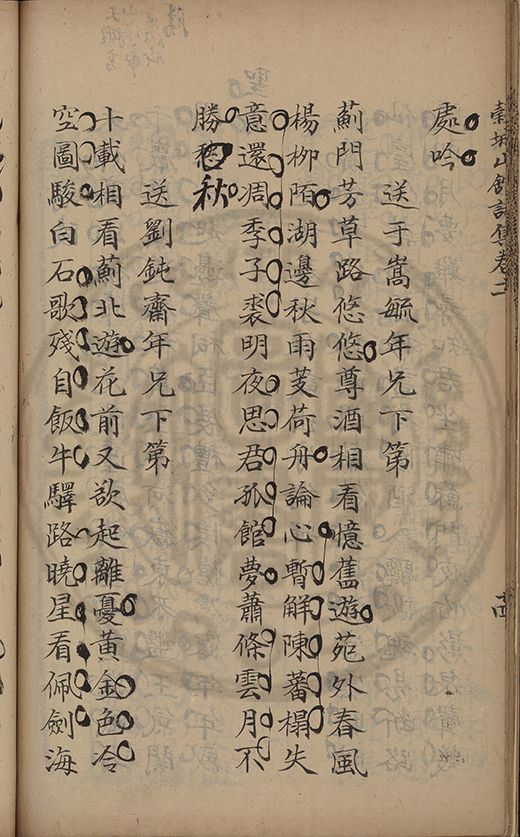 處吟
送于嵩毓年兄下第
薊門芳草路悠悠尊酒相看憶舊遊苑外春風
楊柳陌湖邊秋雨芰荷舟論心暫解陳蕃榻失
意還凋季子裘明夜思君孤館夢蕭條雲月不
勝愁秋
送劉鈍齋年兄下第
十載相看薊北遊花前又欲起離憂黃金色冷
空圖駿白石歌殘自飯牛驛路曉星看佩劍海